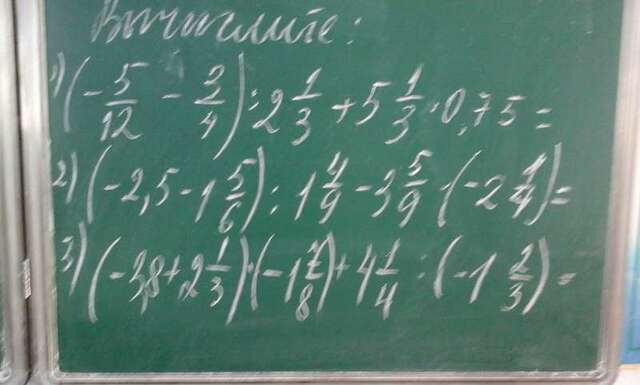 Вычислите:
1) (-5/12 - 3/4) : 2 1/3 + 5 1/3 · 0,75 =
2) (-2,5 - 1 5/6) : 1 4/9 - 3 5/9 · (-2 1/4) =
3) (-3,8 + 2 1/3) · (-1 1/8) + 4 1/4 : (-1 2/3) =